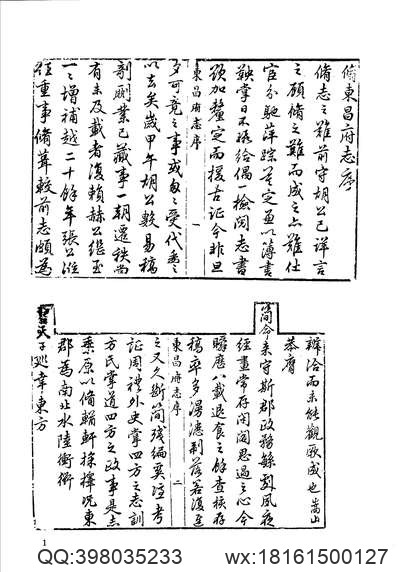 脩東昌府志序
脩志之難前守胡公已詳言
之顧脩之難而成之亦難仕
宦分馳萍踪莫定兼以簿書
鞅掌日不暇給偶一檢閱志書
加釐定而援古証今非旦
東昌府志序
一
夕可竟之事或受代委之
以去矣歲甲午胡公數易稿
剞劂業已蕆事一朝遷秩尚
有未及載者復賴赫公繼至
一一增補越二十餘年張公
重事脩葺較前志頗為
辨洽而未能觀厥成也嵩山
恭膺
簡命來守斯郡政務餘夙夜
經畫常存閤閉思過之心今
瞬應八載退食之餘查核存
稿率多漫漶剝落若復至
東昌府志序
二
之又久斷簡殘編奚考
証周禮外史掌四方之志訓
方氏掌道四方之政事是志
乘原以備輶軒採擇況東
郡為南北水陸衝衢
天子廵幸東方
1
QQ:398035233
wx:18161500127